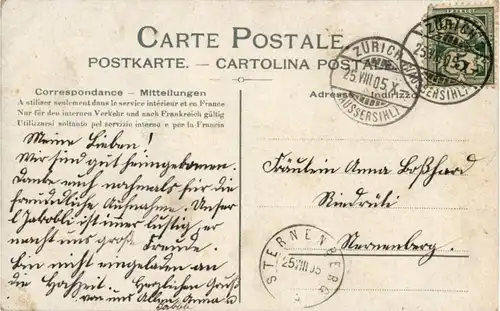 CARTE POSTALE
POSTKARTE. — CARTOLINA POSTALE
Correspondance - Mitteilungen
A utiliser seulement dans le service intérieur et en France
Nur für den internen Verkehr und nach Frankreich gültig
Utilizzarsi soltanto pel servizio interno e per la Francia
Adresse Indirizzo
ZÜRICH
25.VIII.05.X
(AUSSERSIHL)
ZÜRICH
25.VIII.05.X
(AUSSERSIHL)
Meine Lieben!
Wir sind gut heimgekommen.
Danke euch nochmals für die
freundliche Aufnahme. Unser
Jakobli ist immer lustig, er
macht uns große Freude.
Bin nicht eingeladen an
die Hochzeit. Herzlichen Gruß
von uns Allen Anna u
Jakobli
Fräulein Anna Boßhard
Riedrüti
Sternenberg.
STERNENBERG
25.VIII.05